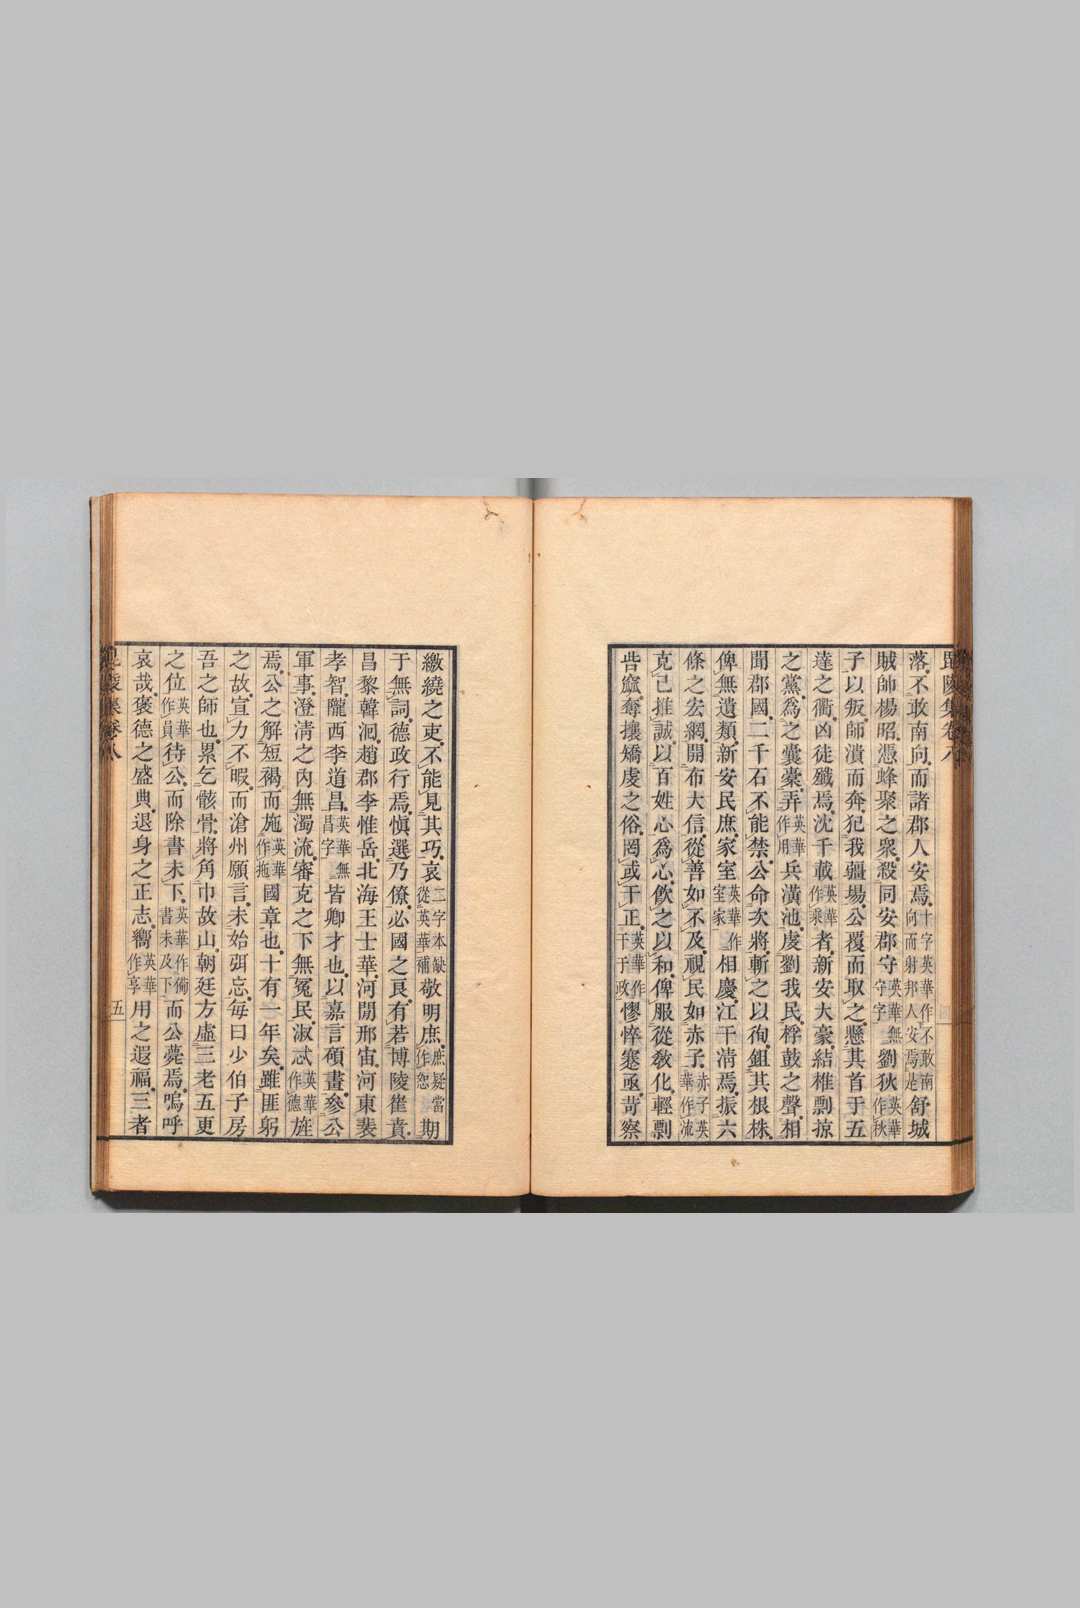 毘陵集卷八
落不敢南向而諸郡人安焉十字英華作不敢南向而射邦人安焉是舒城
賊師楊昭憑蜂聚之衆殺同安郡守英華無守字劉狄英華作秋
子以叛師潰而奔犯我疆場公覆而取之懸其首于五
達之衢凶徒殲焉沈千載英華作乘者新安大豪結椎剽掠
之黨爲之囊橐弄英華作用兵潢池虔劉我民桴鼓之聲相
聞郡國二千石不能禁公命次將斬之以徇鉏其根株
俾無遺類新安民庶家室英華作室家相慶江干淸焉振六
條之宏網開布大信從善如不及視民如赤子赤子英華作流
克己推誠以百姓心爲心飮之以和俾服從敎化輕剽
呰窳奪攘矯虔之俗罔或干正英華作干于政憀悴蹇亟苛察
繳繞之吏不能見其巧哀二字本缺從英華補敬明庶庶疑當作恕期
于無詞德政行焉愼選乃僚必國之良有若博陵崔賁
昌黎韓洄趙郡李惟岳北海王士華河閒邢宙河東裴
孝智隴西李道昌英華無昌字皆卿才也以嘉言碩畫參公
軍事澄淸之內無濁流審克之下無冤民淑忒英華作德旌
焉公之解短褐而施英華作拖國章也十有一年矣雖匪躬
之故宣力不暇而滄州願言未始弭忘每曰少伯子房
吾之師也累乞骸骨將角巾故山朝廷方虛三老五更
之位英華作員待公而除書未下英華作徜書未及下而公薨焉嗚呼
哀哉褒德之盛典退身之正志嚮英華作享用之遐福三者
毘陵集卷八
五